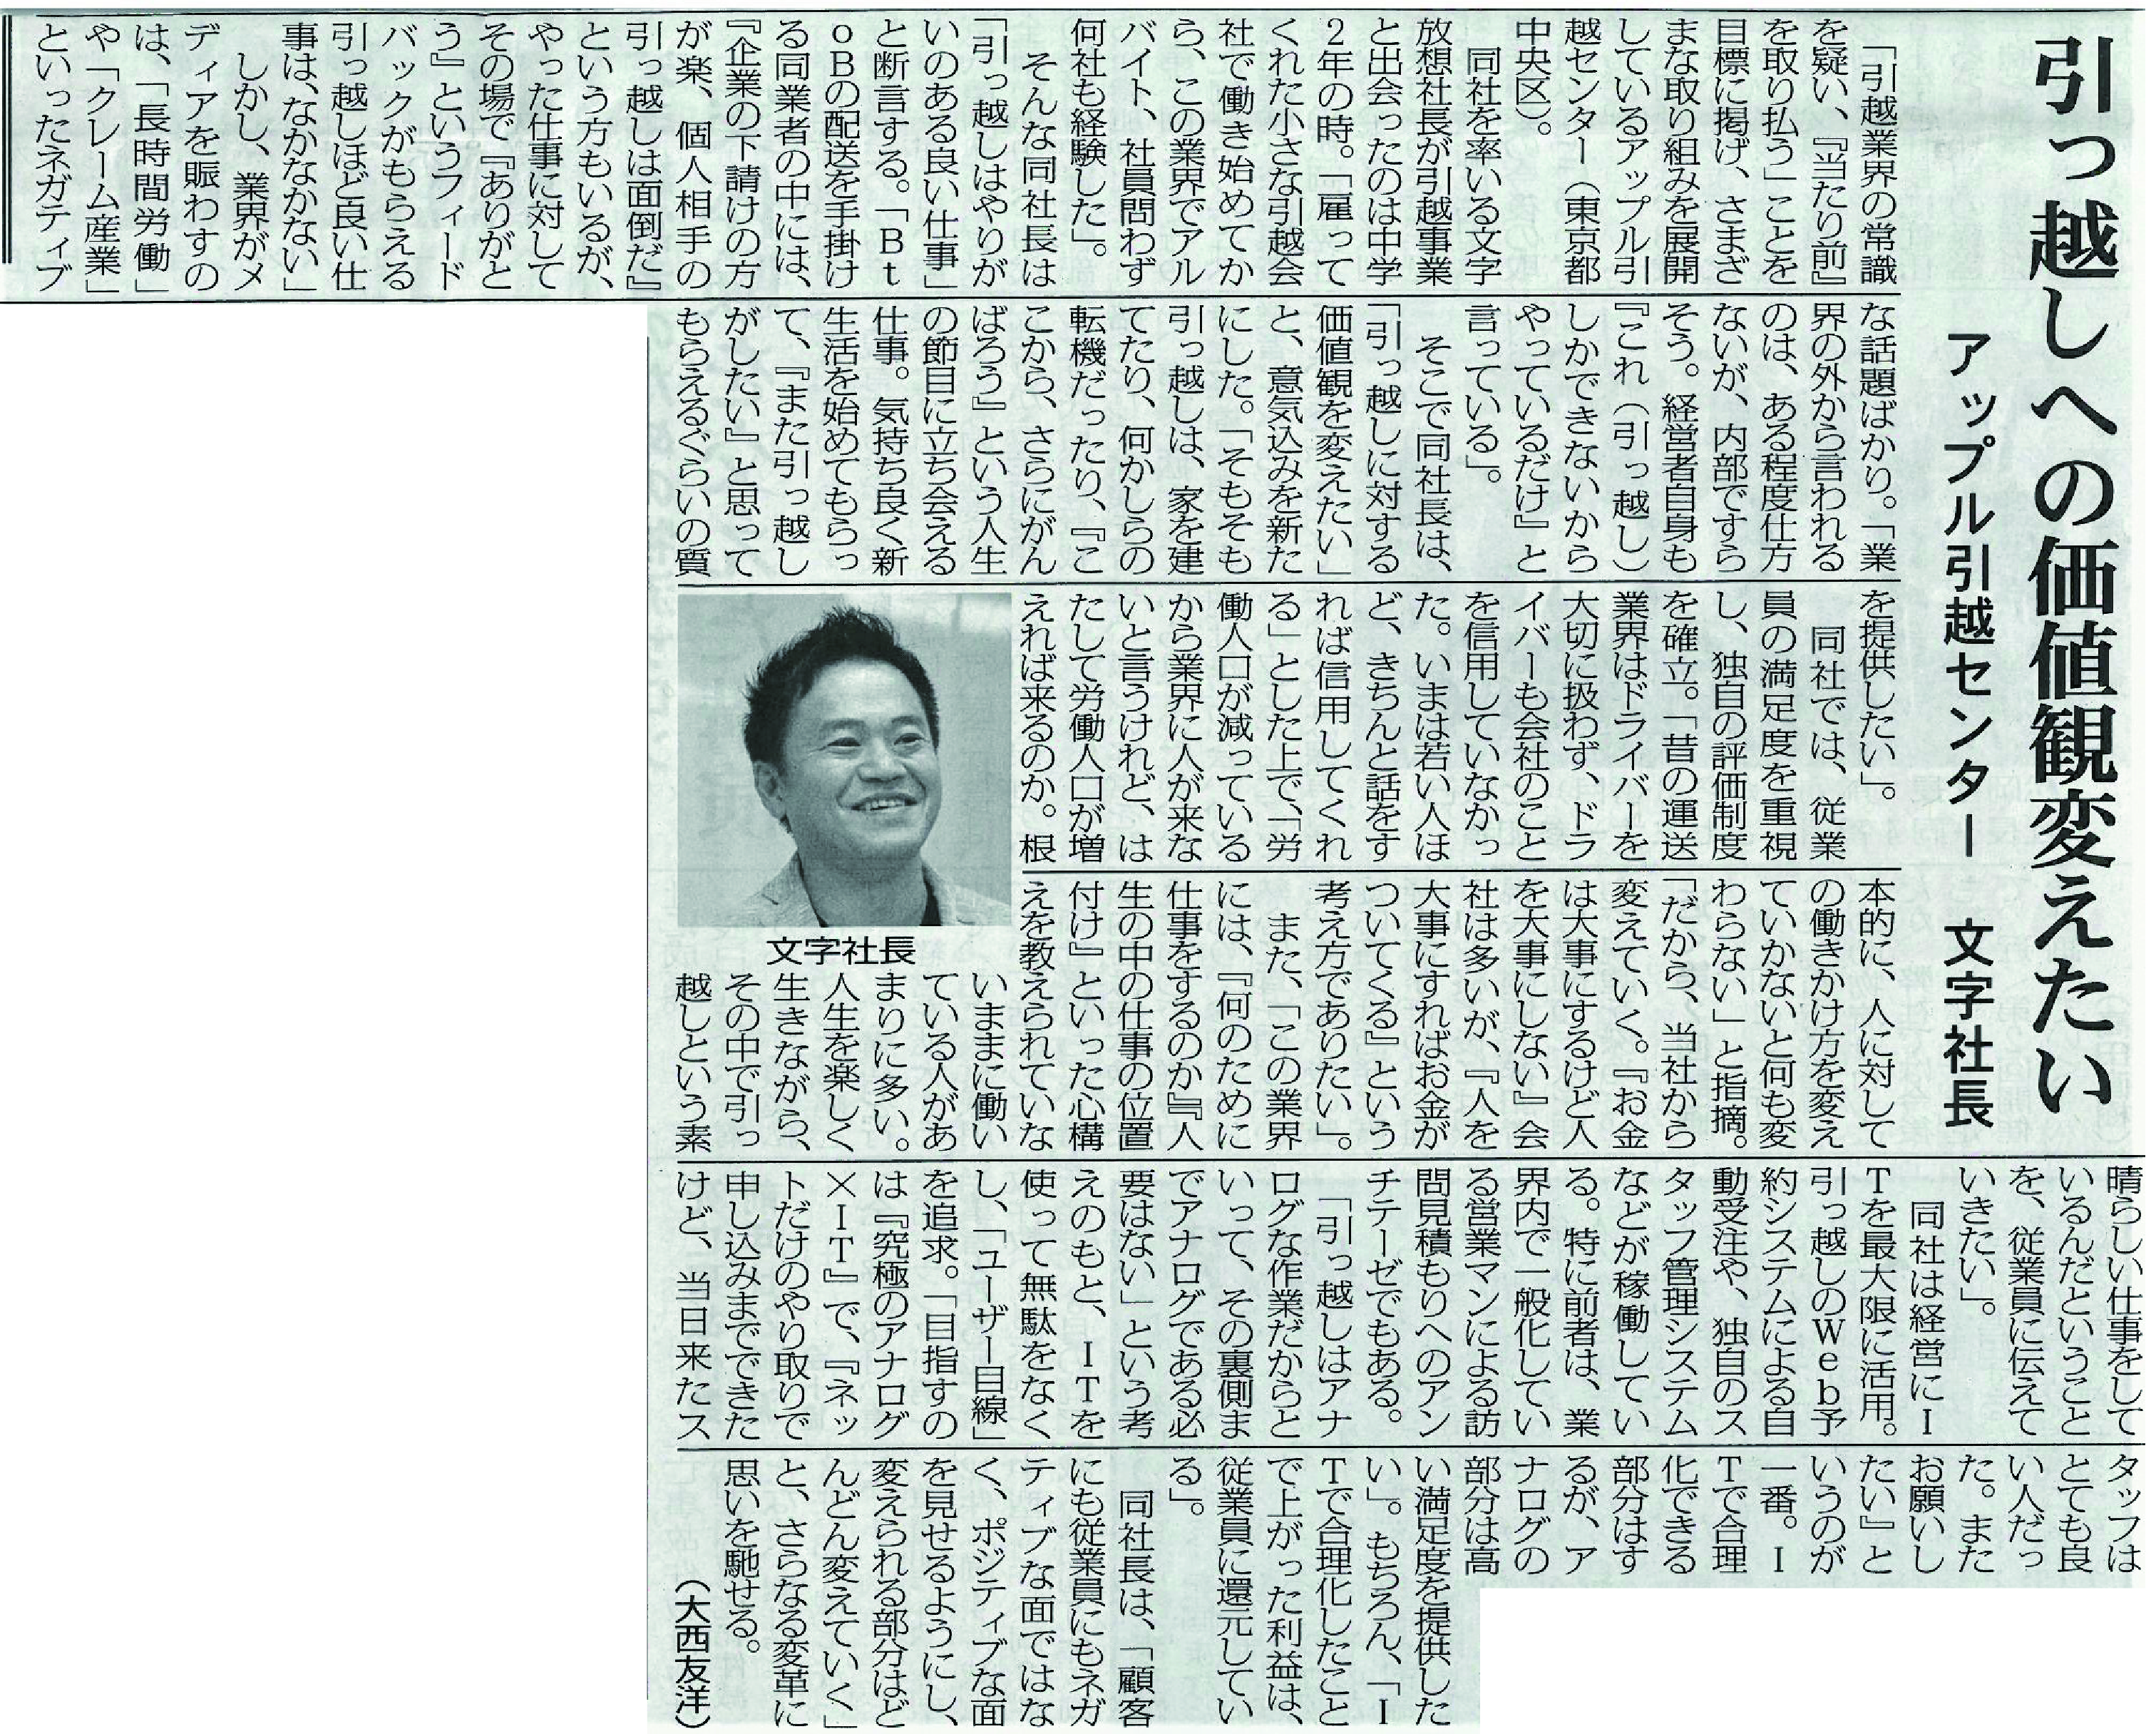 引っ越しへの価値観変えたい
アップル引越センター　文字社長
「引越業界の常識
を疑い、『当たり前』
を取り払う」ことを
目標に掲げ、さまざ
まな取り組みを展開
しているアップル引
越センター（東京都
中央区）。
同社を率いる文字
放想社長が引越事業
と出会ったのは中学
2年の時。「雇って
くれた小さな引越会
社で働き始めてか
ら、この業界でアル
バイト、社員問わず
何社も経験した」。
そんな同社長は
「引っ越しはやりが
いのある良い仕事」
と断言する。「Bt
oBの配送を手掛け
る同業者の中には、
『企業の下請けの方
が楽、個人相手の
引っ越しは面倒だ』
という方もいるが、
やった仕事に対して
その場で『ありがと
う』というフィード
バックがもらえる
引っ越しほど良い仕
事は、なかなかない」
しかし、業界がメ
ディアを賑わすの
は、「長時間労働」
や「クレーム産業」
といったネガティブ
な話題ばかり。「業
界の外から言われる
のは、ある程度仕方
ないが、内部ですら
そう。経営者自身も
『これ（引っ越し）
しかできないから
やっているだけ』と
言っている」。
そこで同社長は、
「引っ越しに対する
価値観を変えたい」
と、意気込みを新た
にした。「そもそも
引っ越しは、家を建
てたり、何かしらの
転機だったり、『こ
こから、さらにがん
ばろう』という人生
の節目に立ち会える
仕事。気持ち良く新
生活を始めてもらっ
て、『また引っ越し
がしたい』と思って
もらえるぐらいの質
を提供したい」。
同社では、従業
員の満足度を重視
し、独自の評価制度
を確立。「昔の運送
業界はドライバーを
大切に扱わず、ドラ
イバーも会社のこと
を信用していなかっ
た。いまは若い人ほ
ど、きちんと話をす
れば信用してくれ
る」とした上で、「労
働人口が減っている
から業界に人が来な
いと言うけれど、は
たして労働人口が増
えれば来るのか。根
本的に、人に対して
の働きかけ方を変え
ていかないと何も変
わらない」と指摘。
「だから、当社から
変えていく。『お金
は大事にするけど人
を大事にしない』会
社は多いが、『人を
大事にすればお金が
ついてくる』という
考え方でありたい」。
また、「この業界
には、『何のために
仕事をするのか』『人
生の中の仕事の位置
付け』といった心構
えを教えられていな
いままに働い
ている人があ
まりに多い。
人生を楽しく
生きながら、
その中で引っ
越しという素
晴らしい仕事をして
いるんだということ
を、従業員に伝えて
いきたい」。
同社は経営にI
Tを最大限に活用。
引っ越しのWeb予
約システムによる自
動受注や、独自のス
タッフ管理システム
などが稼働してい
る。特に前者は、業
界内で一般化してい
る営業マンによる訪
問見積もりへのアン
チテーゼでもある。
「引っ越しはアナ
ログな作業だからと
いって、その裏側ま
でアナログである必
要はない」という考
えのもと、ITを
使って無駄をなく
し、「ユーザー目線」
を追求。「目指すの
は『究極のアナログ
×IT』で、『ネッ
トだけのやり取りで
申し込みまでできた
けど、当日来たス
タッフは
とても良
い人だっ
た。また
お願いし
たい』と
いうのが
一番。I
Tで合理
化できる
部分はす
るが、ア
ナログの
部分は高
い満足度を提供した
い」。もちろん、「I
Tで合理化したこと
で上がった利益は、
従業員に還元してい
る」。
同社長は、「顧客
にも従業員にもネガ
ティブな面ではな
く、ポジティブな面
を見せるようにし、
変えられる部分はど
んどん変えていく」
と、さらなる変革に
思いを馳せる。
（大西友洋）
文字社長